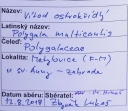 Název: Vítod ostrokřídlý
Latinský název:
Polygala multicaulis
Čeleď: Polygalaceae
Lokalita: Metylovice (F-M)
u sv. Anny - zahrada
Datum sběru: Sbíral:
12.8.2018 Zbyněk Lukeš